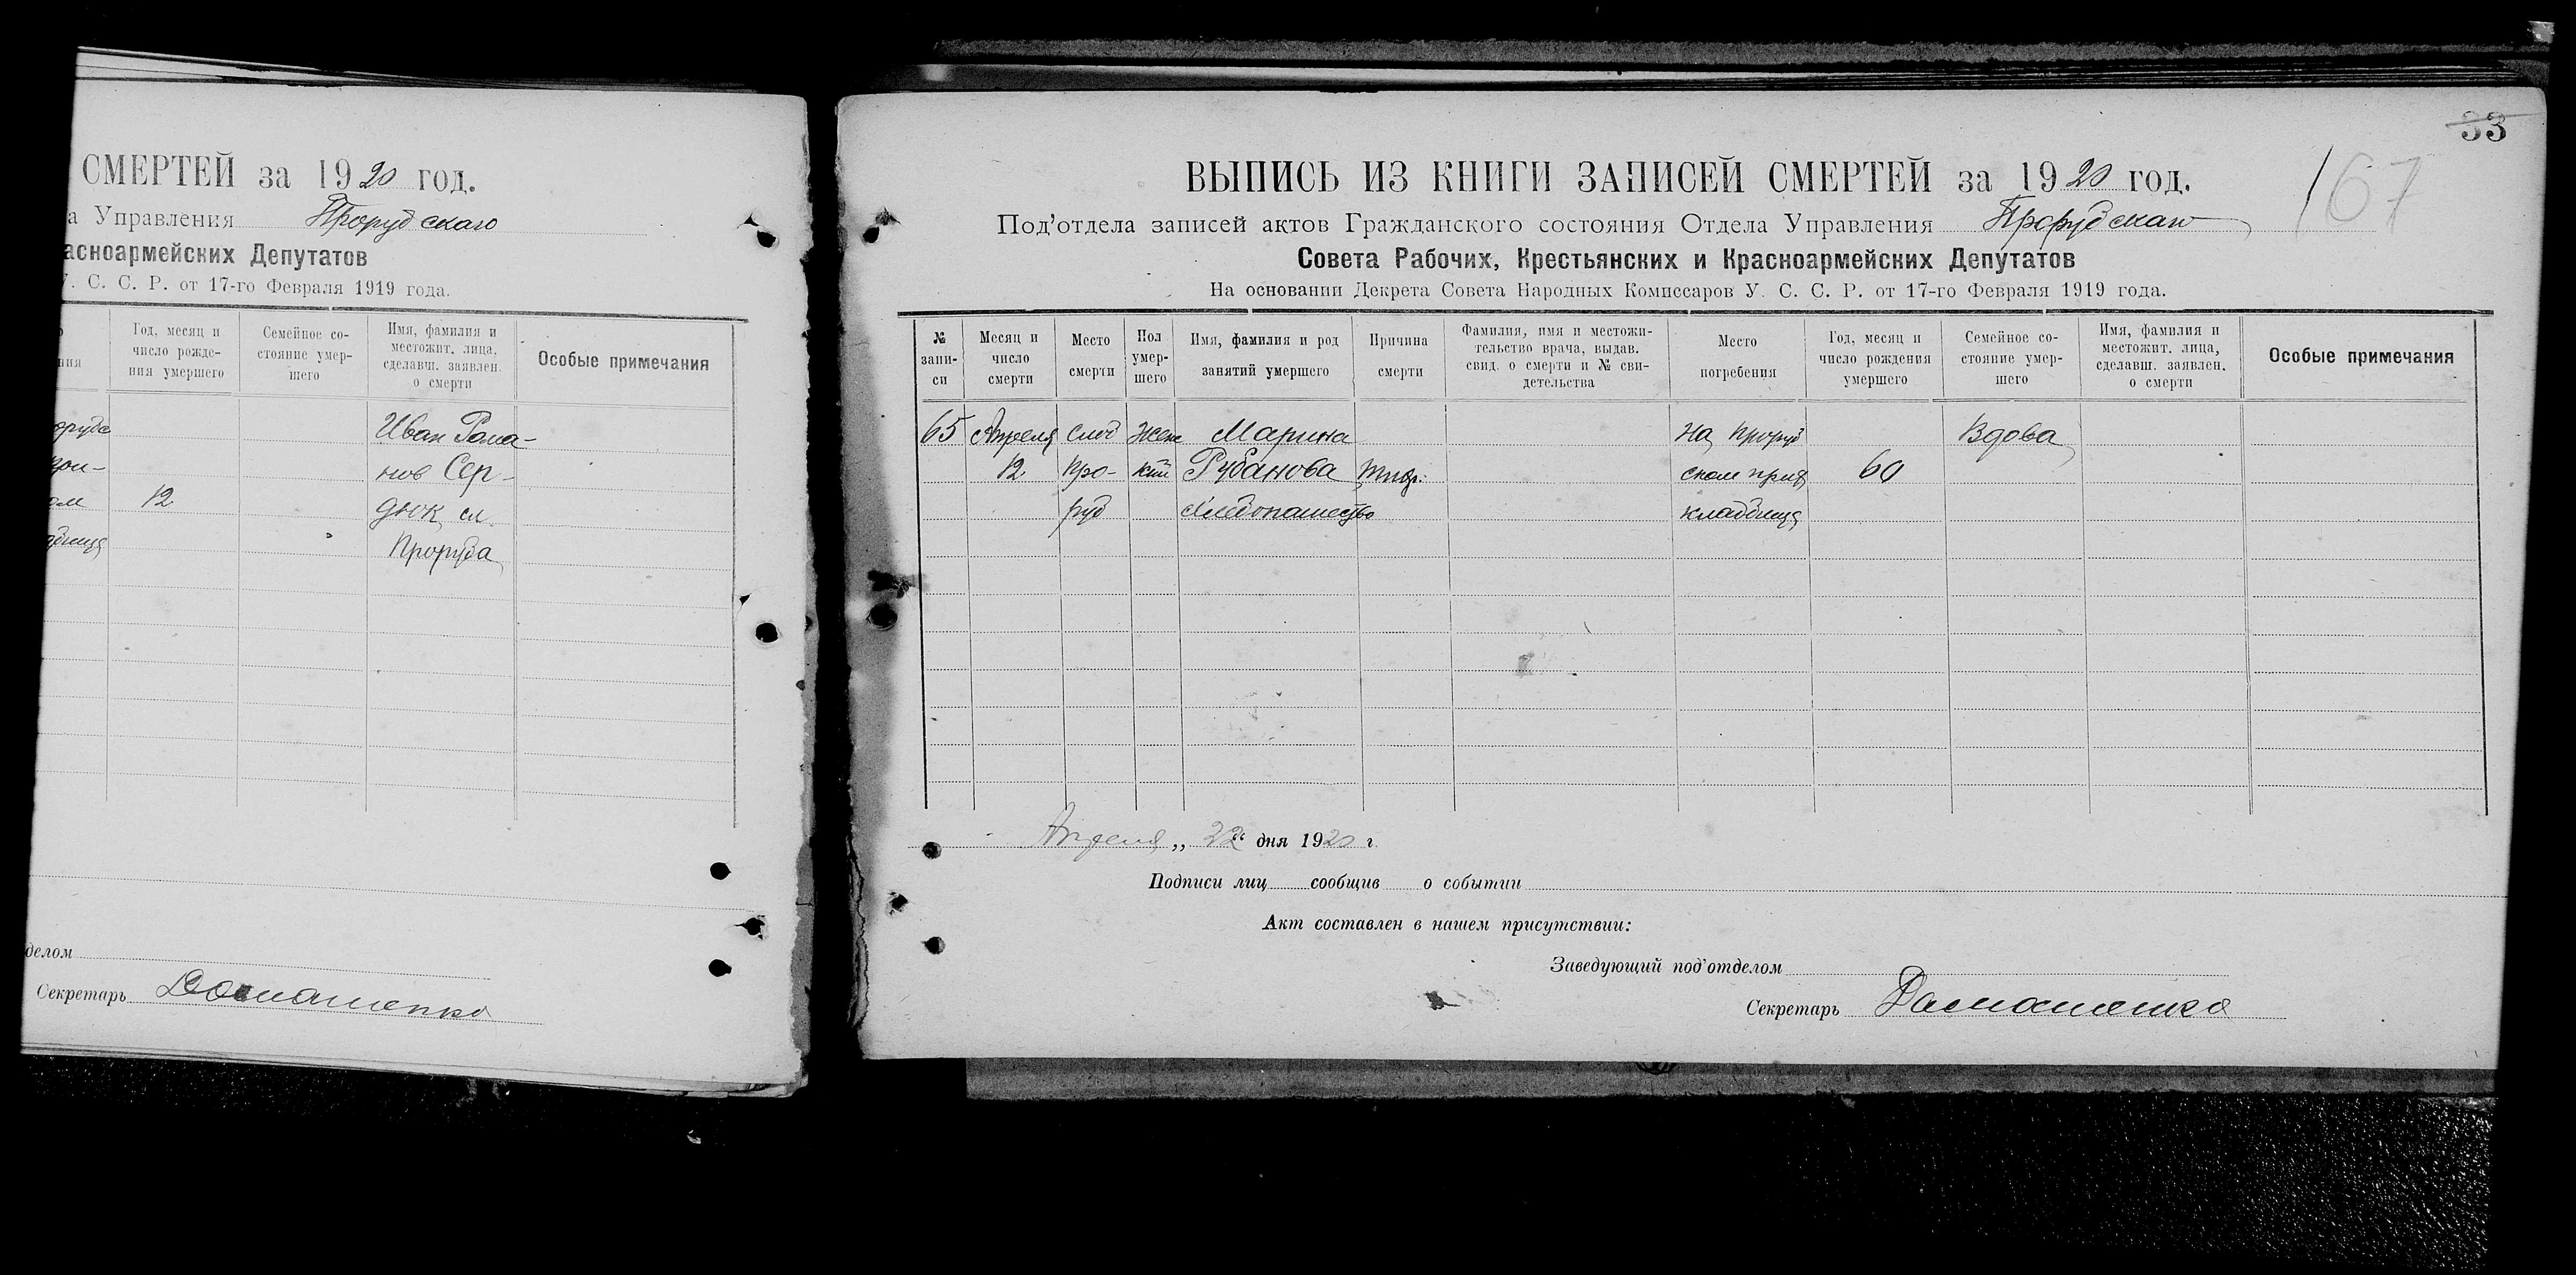 СМЕРТЕЙ за 1920 год.
а Управления Прорубскаго
асноармейских Депутатов
У. С. С. Р. от 17-го Февраля 1919 года.
Год, месяц и число рожде-ния умершего
Семейное со-стояние умер-шего
Имя, фамилия и местожит. лица, сделавш. заявлен. о смерти
Особые примечания
Иван Рома-
нов Сер-
12 дюк сл.
Проруба
делом
Секретарь Домашенко
33
167
ВЫПИСЬ ИЗ КНИГИ ЗАПИСЕЙ СМЕРТЕЙ за 1920 год.
Под'отдела записей актов Гражданского состояния Отдела Управления Прорубскаго
Совета Рабочих, Крестьянских и Красноармейских Депутатов
На основании Декрета Совета Народных Комиссаров У. С. С. Р. от 17-го Февраля 1919 года.
№ запи-си
Месяц и число смерти
Место смерти
Пол умер-шего
Имя, фамилия и род занятий умершего
Причина смерти
Фамилия, имя и местожи-тельство врача, выдав. свид. о смерти и № сви-детельства
Место погребения
Год, месяц и число рождения умершего
Семейное со-стояние умер-шего
Имя, фамилия и местожит. лица, сделавш. заявлен. о смерти
Особые примечания
65 Апреля Слоб Женс Марина На Проруб Вдова
12 Про- кий Рубанова Тиф. ском прих 60
руб Хлебопашество кладбища
Апреля „ 22 “ дня 1920 г.
Подписи лиц сообщив о событии
Акт составлен в нашем присутствии:
Заведующий под'отделом
Секретарь Домашенко